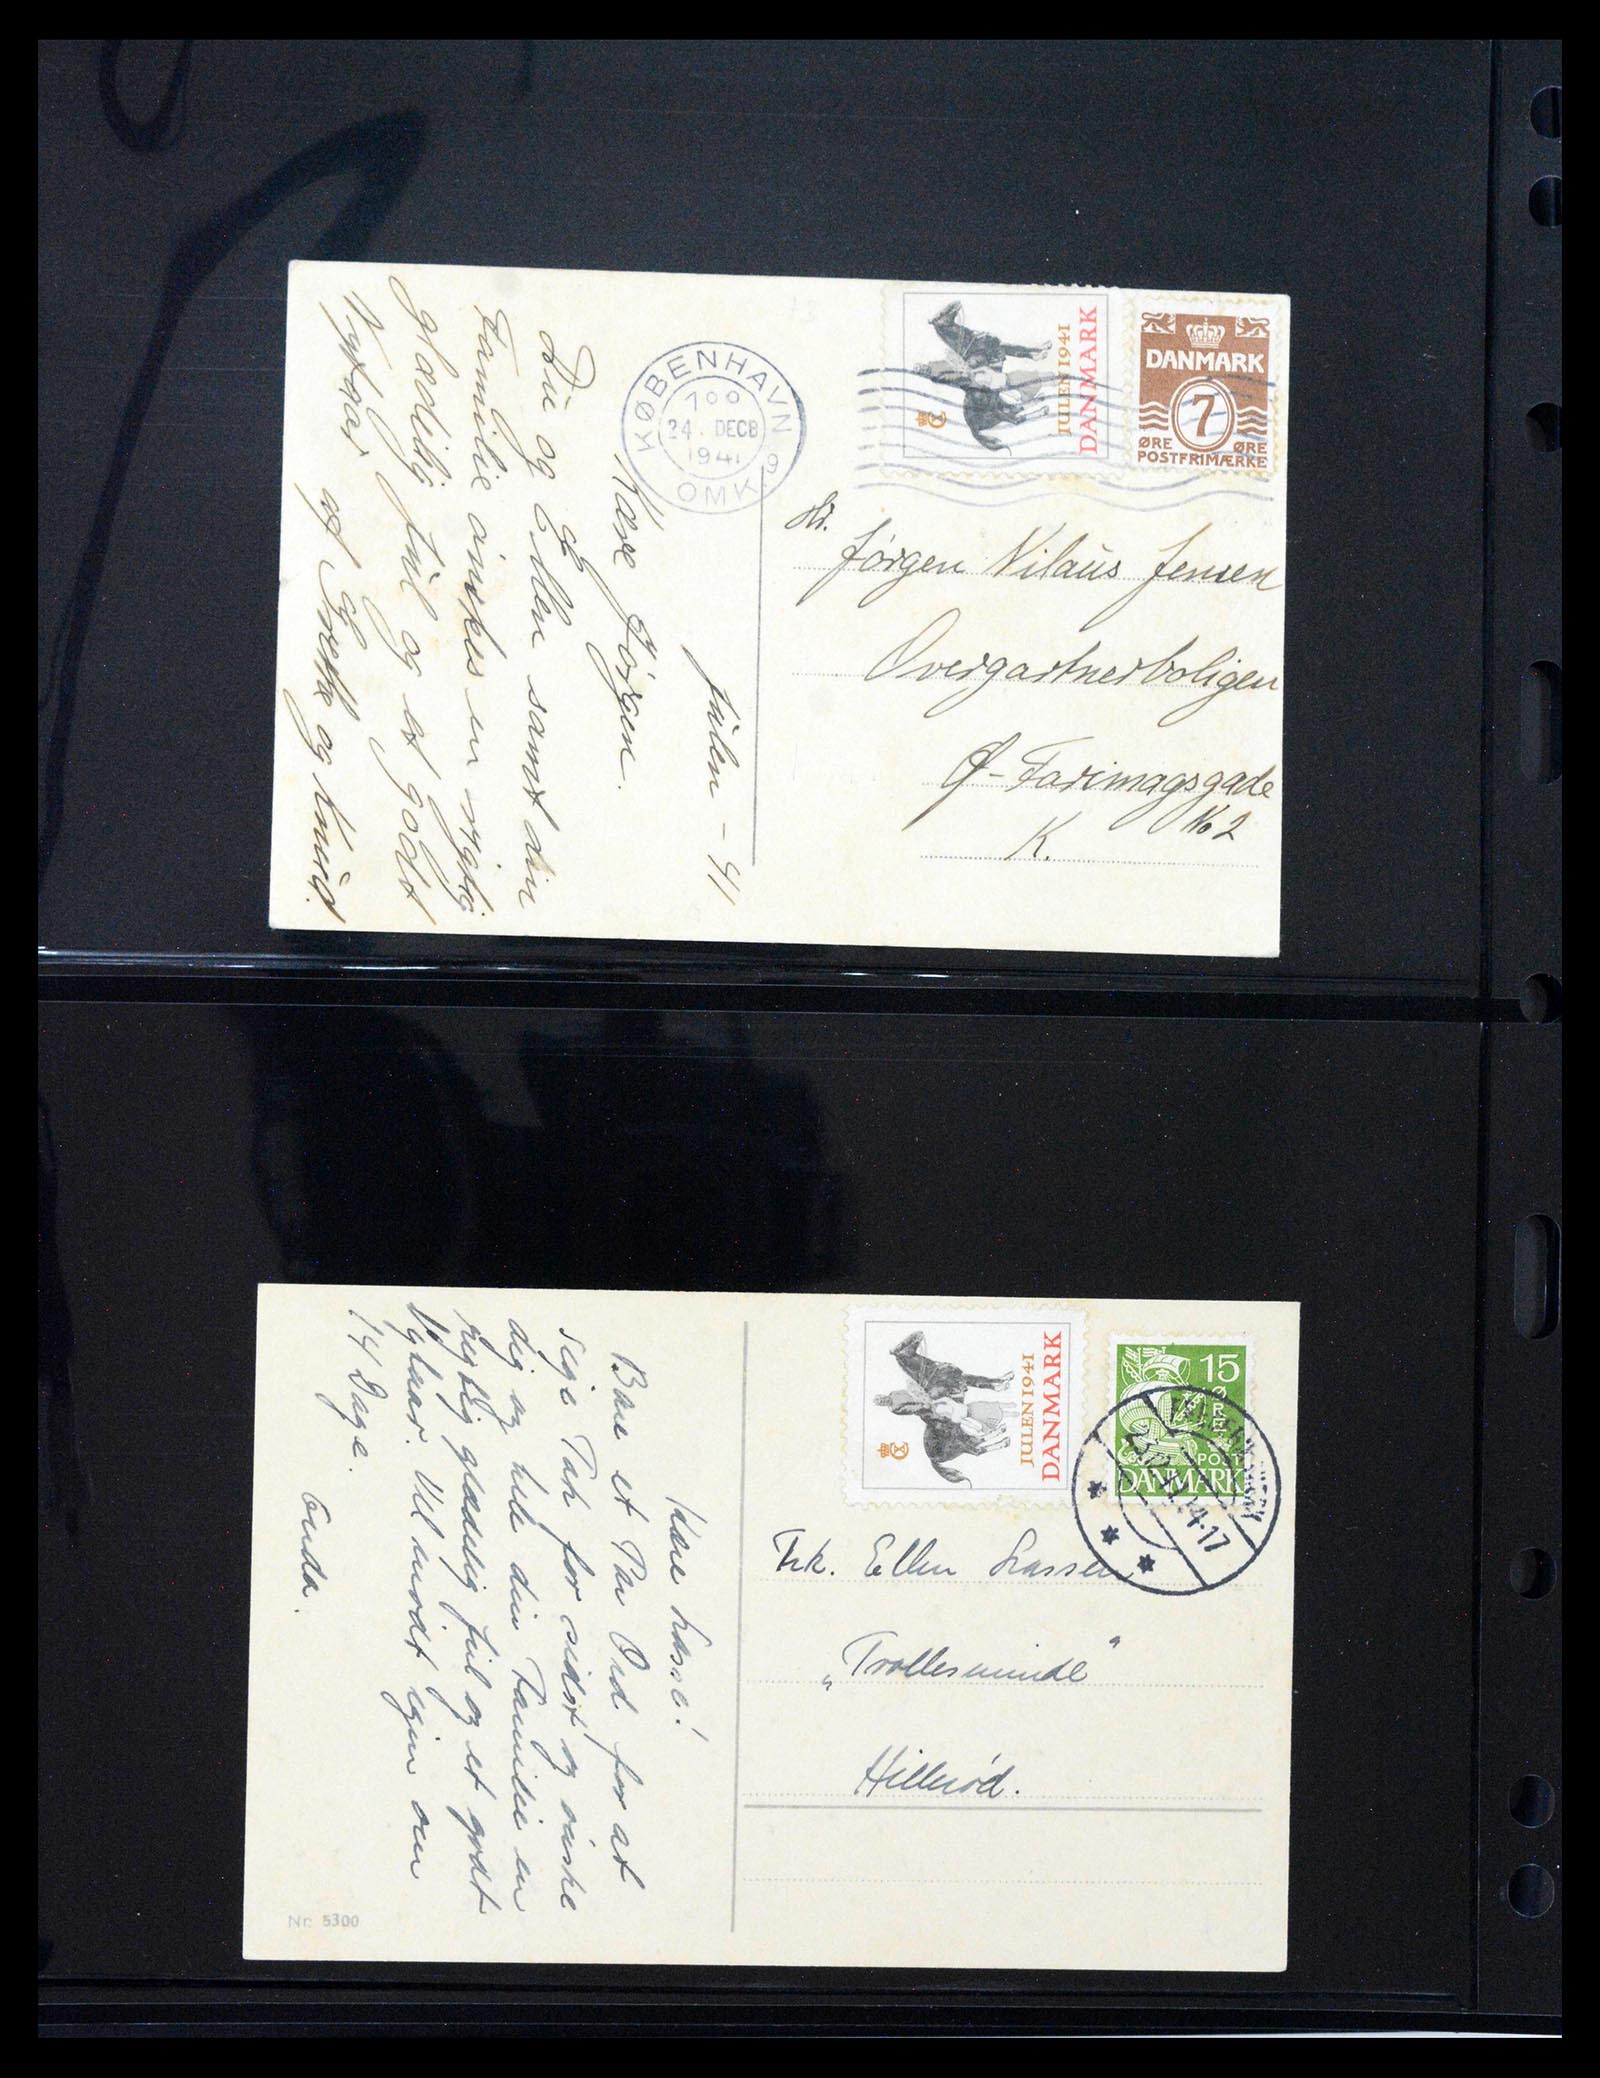 KØBENHAVN
7 00
24. DECB
1941
OMK. 9
JULEN 1941
DANMARK
DANMARK
7
ØRE ØRE
POSTFRIMÆRKE
Hr.
Jørgen Nilaus Jensen
Overgartnerboligen
Ø-Farimagsgade
No 2
K.
Julen - 41
Kære Jørgen.
Du og Ellen samt din
Familie ønskes en rigtig
glædelig Jul og et godt
Nytaar,
af Grethe og Knud.
JULEN 1941
DANMARK
15
ØRE
POST
DANMARK
14-17
Frk. Ellen Lassen
"Trollesminde"
Hillerød.
Kære Lasse!
Bare et Par Ord for at
sige Tak for sidst og ønske
dig og hele din Familie en
rigtig glædelig Jul og et godt
Nytaar. Vel mødt igen om
14 Dage.
Gerda.
Nr. 5300